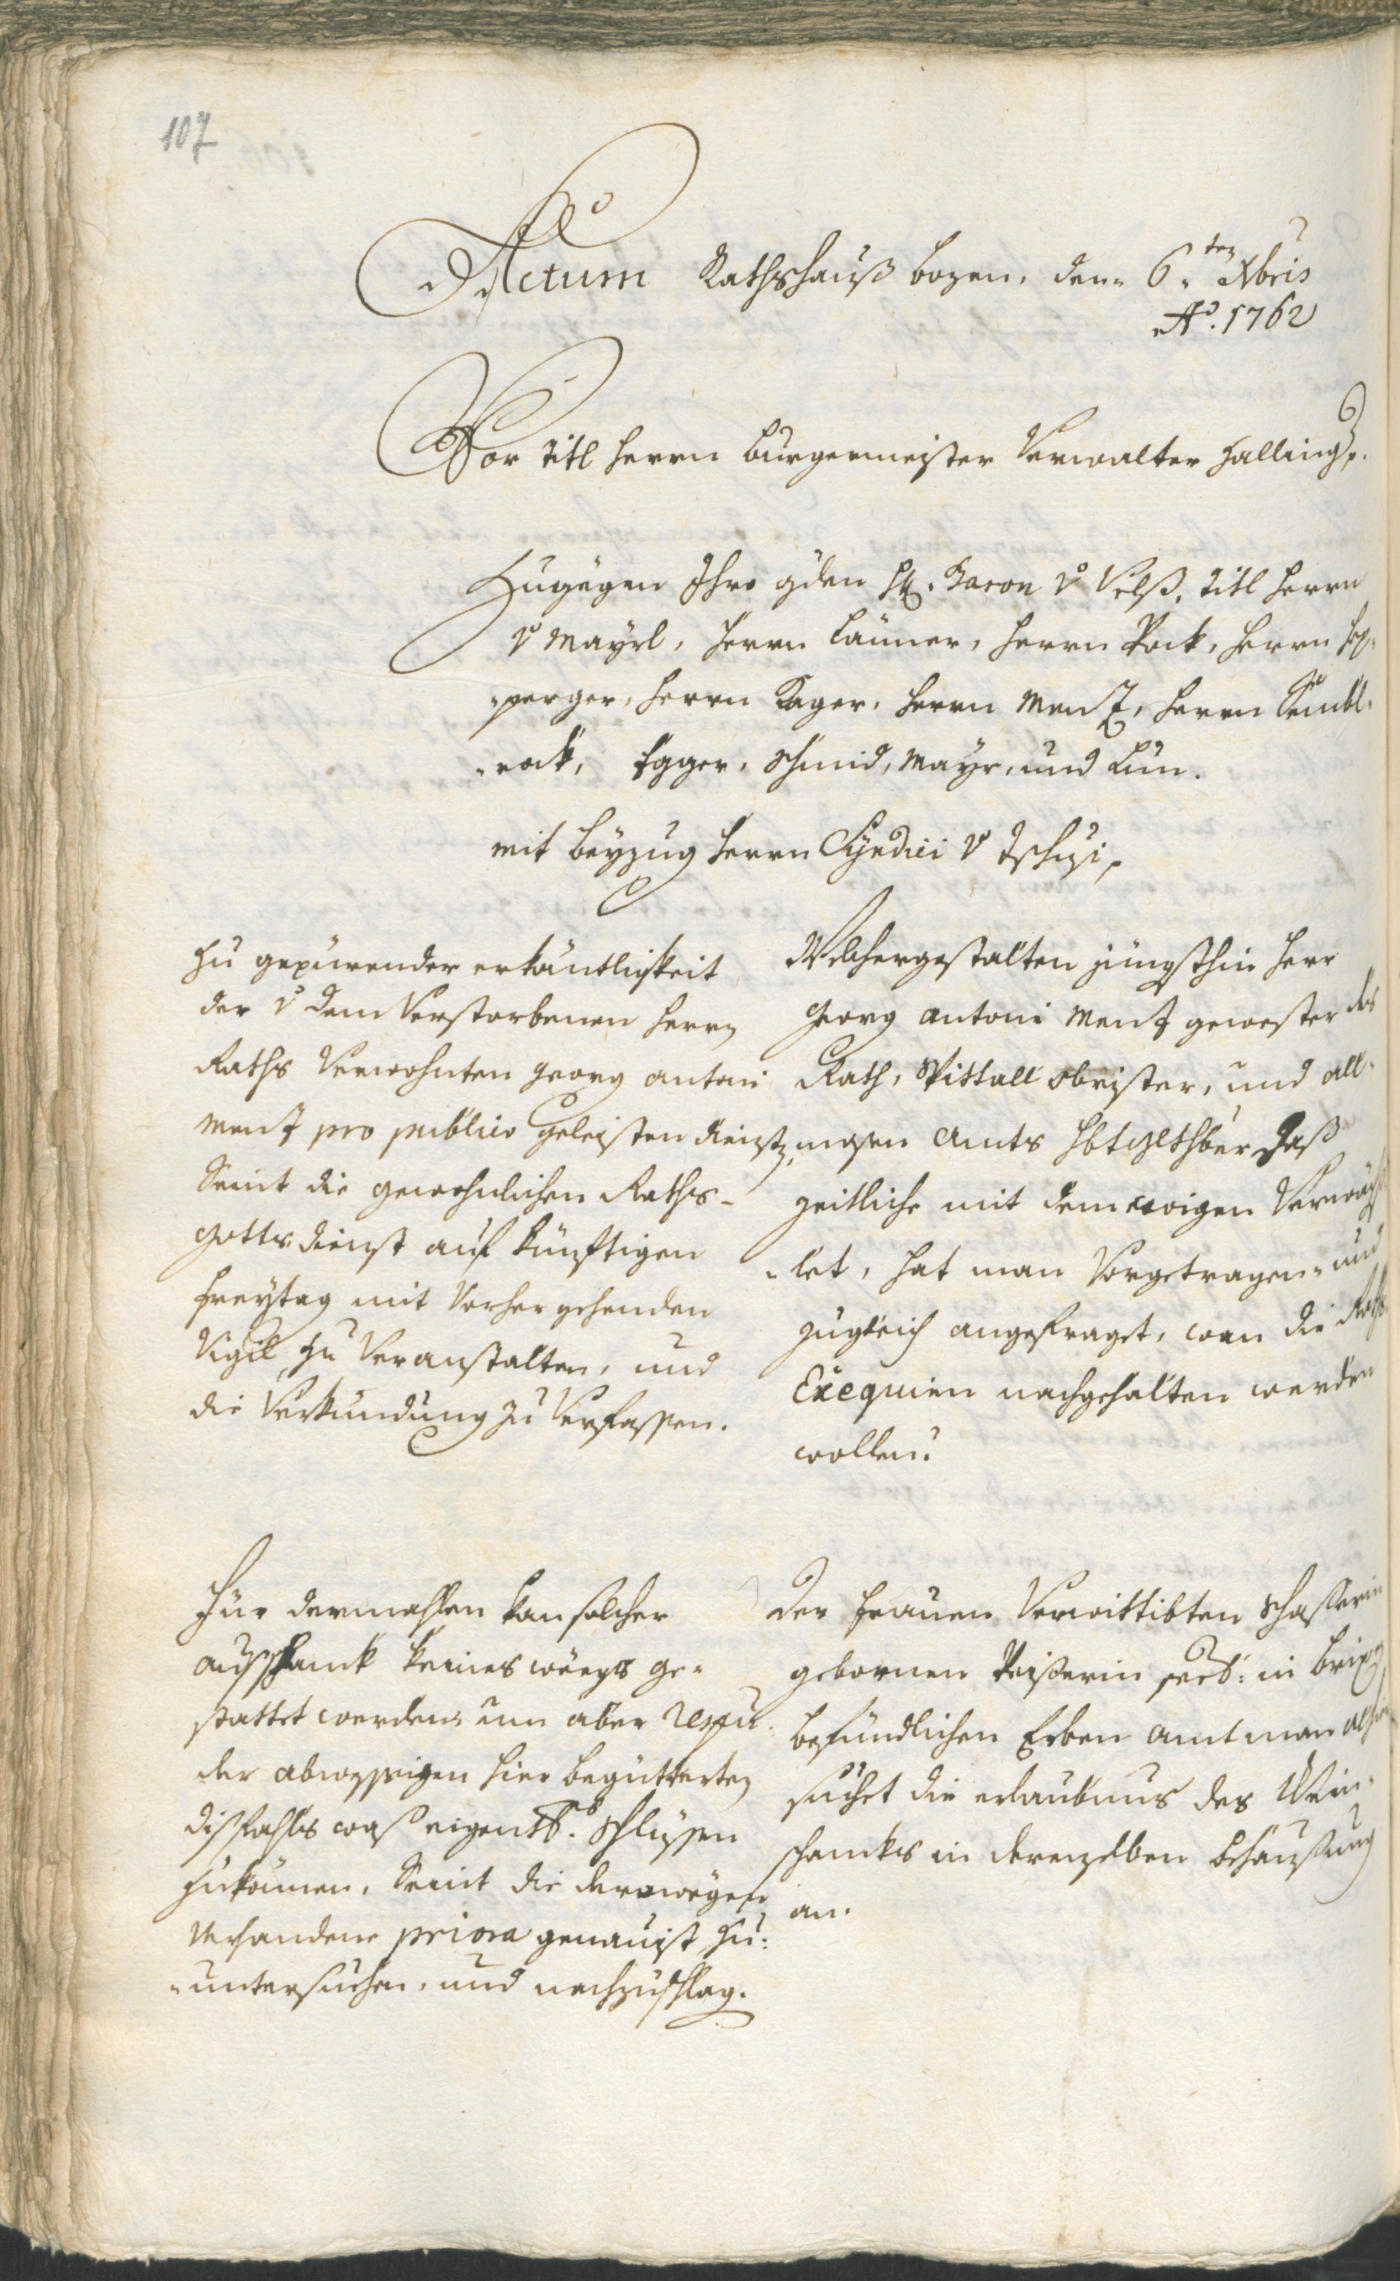 107
Actum Rathshauß Bozen, den 6.ten Xbris
Ao. 1762
Vor titl Herrn Burgermeister Verwalter Halling p.
Zugegen Ihro gden H. Baron v Velß, titl Herrn
v Mayrl, Herrn Lanner, Herrn Pock, Herrn
perger, Herrn Kager, Herrn Menz, Herrn
rock, Egger, Schmid, Mayr, und Lun.
mit beyzug Herrn Syndici v Tschusi p
Zu gepürender erkäntligkeit
der v dem Verstorbenen Herrn
Raths Verwohnten Georg Antoni
Menz pro publico geleisten dienst,
Seint die gewohnlichen Raths-
gottsdienst auf künftigen
Freytag mit Vorhergehenden
Vigil zu Veranstalten, und
die Verkundung zu Verfassen.
Welchergestalten jüngsthin Herr
Georg Antoni Menz gewester des
Rath, Spittall obrister, und all-
mosen Amts daß
zeitliche mit dem ewigen Verwäch
let, hat man Vorgetragen, und
zugleich angefraget, wan die Raths
Exequien nachgehalten werden
wollen?
Für dermahlen kan solcher
ausschanck keines weegs ge-
stattet werden, um aber
der abwessigen hier begütterten
dißfahls was eigentl. schlüssen
zukönnen, Seint die derowegen
Verhandene priora genauist zu
untersuchen, und nachzuschlag.
Der Frauen Verwittibten
gebornen in Brixen
befündlichen Erben Amtman
suchet die erlaubnus des Wein-
schancks in derenselben behaußung
an.